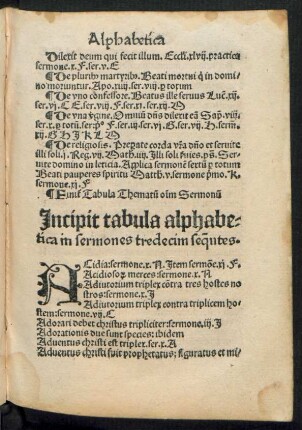 Alphabetica
Dilexit deum qui fecit illum. Eccl. xlvij. practica
sermone. x. F. ser. v. E
¶ De pluribꝰ martyribꝰ. Beati mortui qͥ in domi
no moriuntur. Apo. xiiij. ser. vij. p totum
¶ De vno confessore. Beatus ille seruus Luc. xij.
ser. vj. C E. ser. viij. F. ser. xi. ser. xij.
¶ De vna v̓gine. Omniū dn̄s dilexit eā Sap. viij.
ser. x. p totū. F. ser. vj. G. ser. vij.
G H J K L M
¶ De religiosis. Preparate corda vr̄a dn̄o et seruite
illi soli. j. Reg. vij. Math. iiij. Illi soli suies. ps. Ser
uite domino in leticia. Applica sermonē sextū p totum
Beati pauperes spiritu Math. v. sermone pͥmo. K.
sermone. xj. F
¶ Finit Tabula Thematū oīm Sermonū
Incipit tabula alphabe-
tica in sermones tredecim seqn̄tes.
ACidia: sermone. x. N. Item sermōe. xj. F.
Acidiosoꝝ merces sermone. x. N
Adiutorium triplex cōtra tres hostes no
stros: sermone. x. J
Adiutorium triplex contra triplicem ho-
stem: sermone. vij. C
Adorari debet christus tripliciter: sermone. iij. J
Adorationis due sunt species: ibidem
Aduentus christi est triplex. ser. x. A
Aduentus christi fuit prophetatus; figuratus et mi-